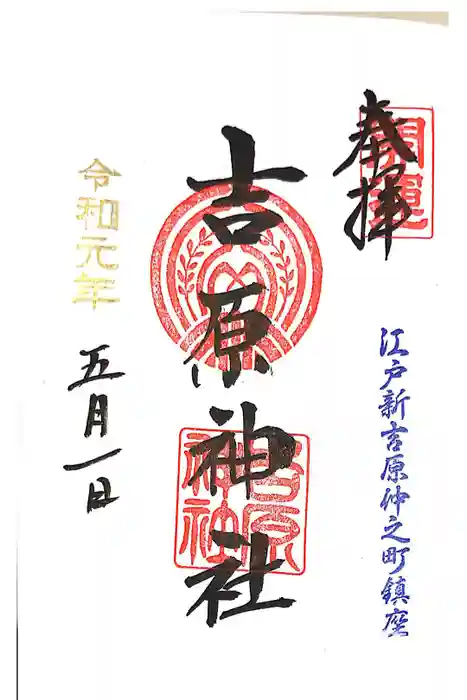 奉拝
開運
江戸新吉原仲之町鎮座
吉原神社
吉原神社
令和元年
五月一日